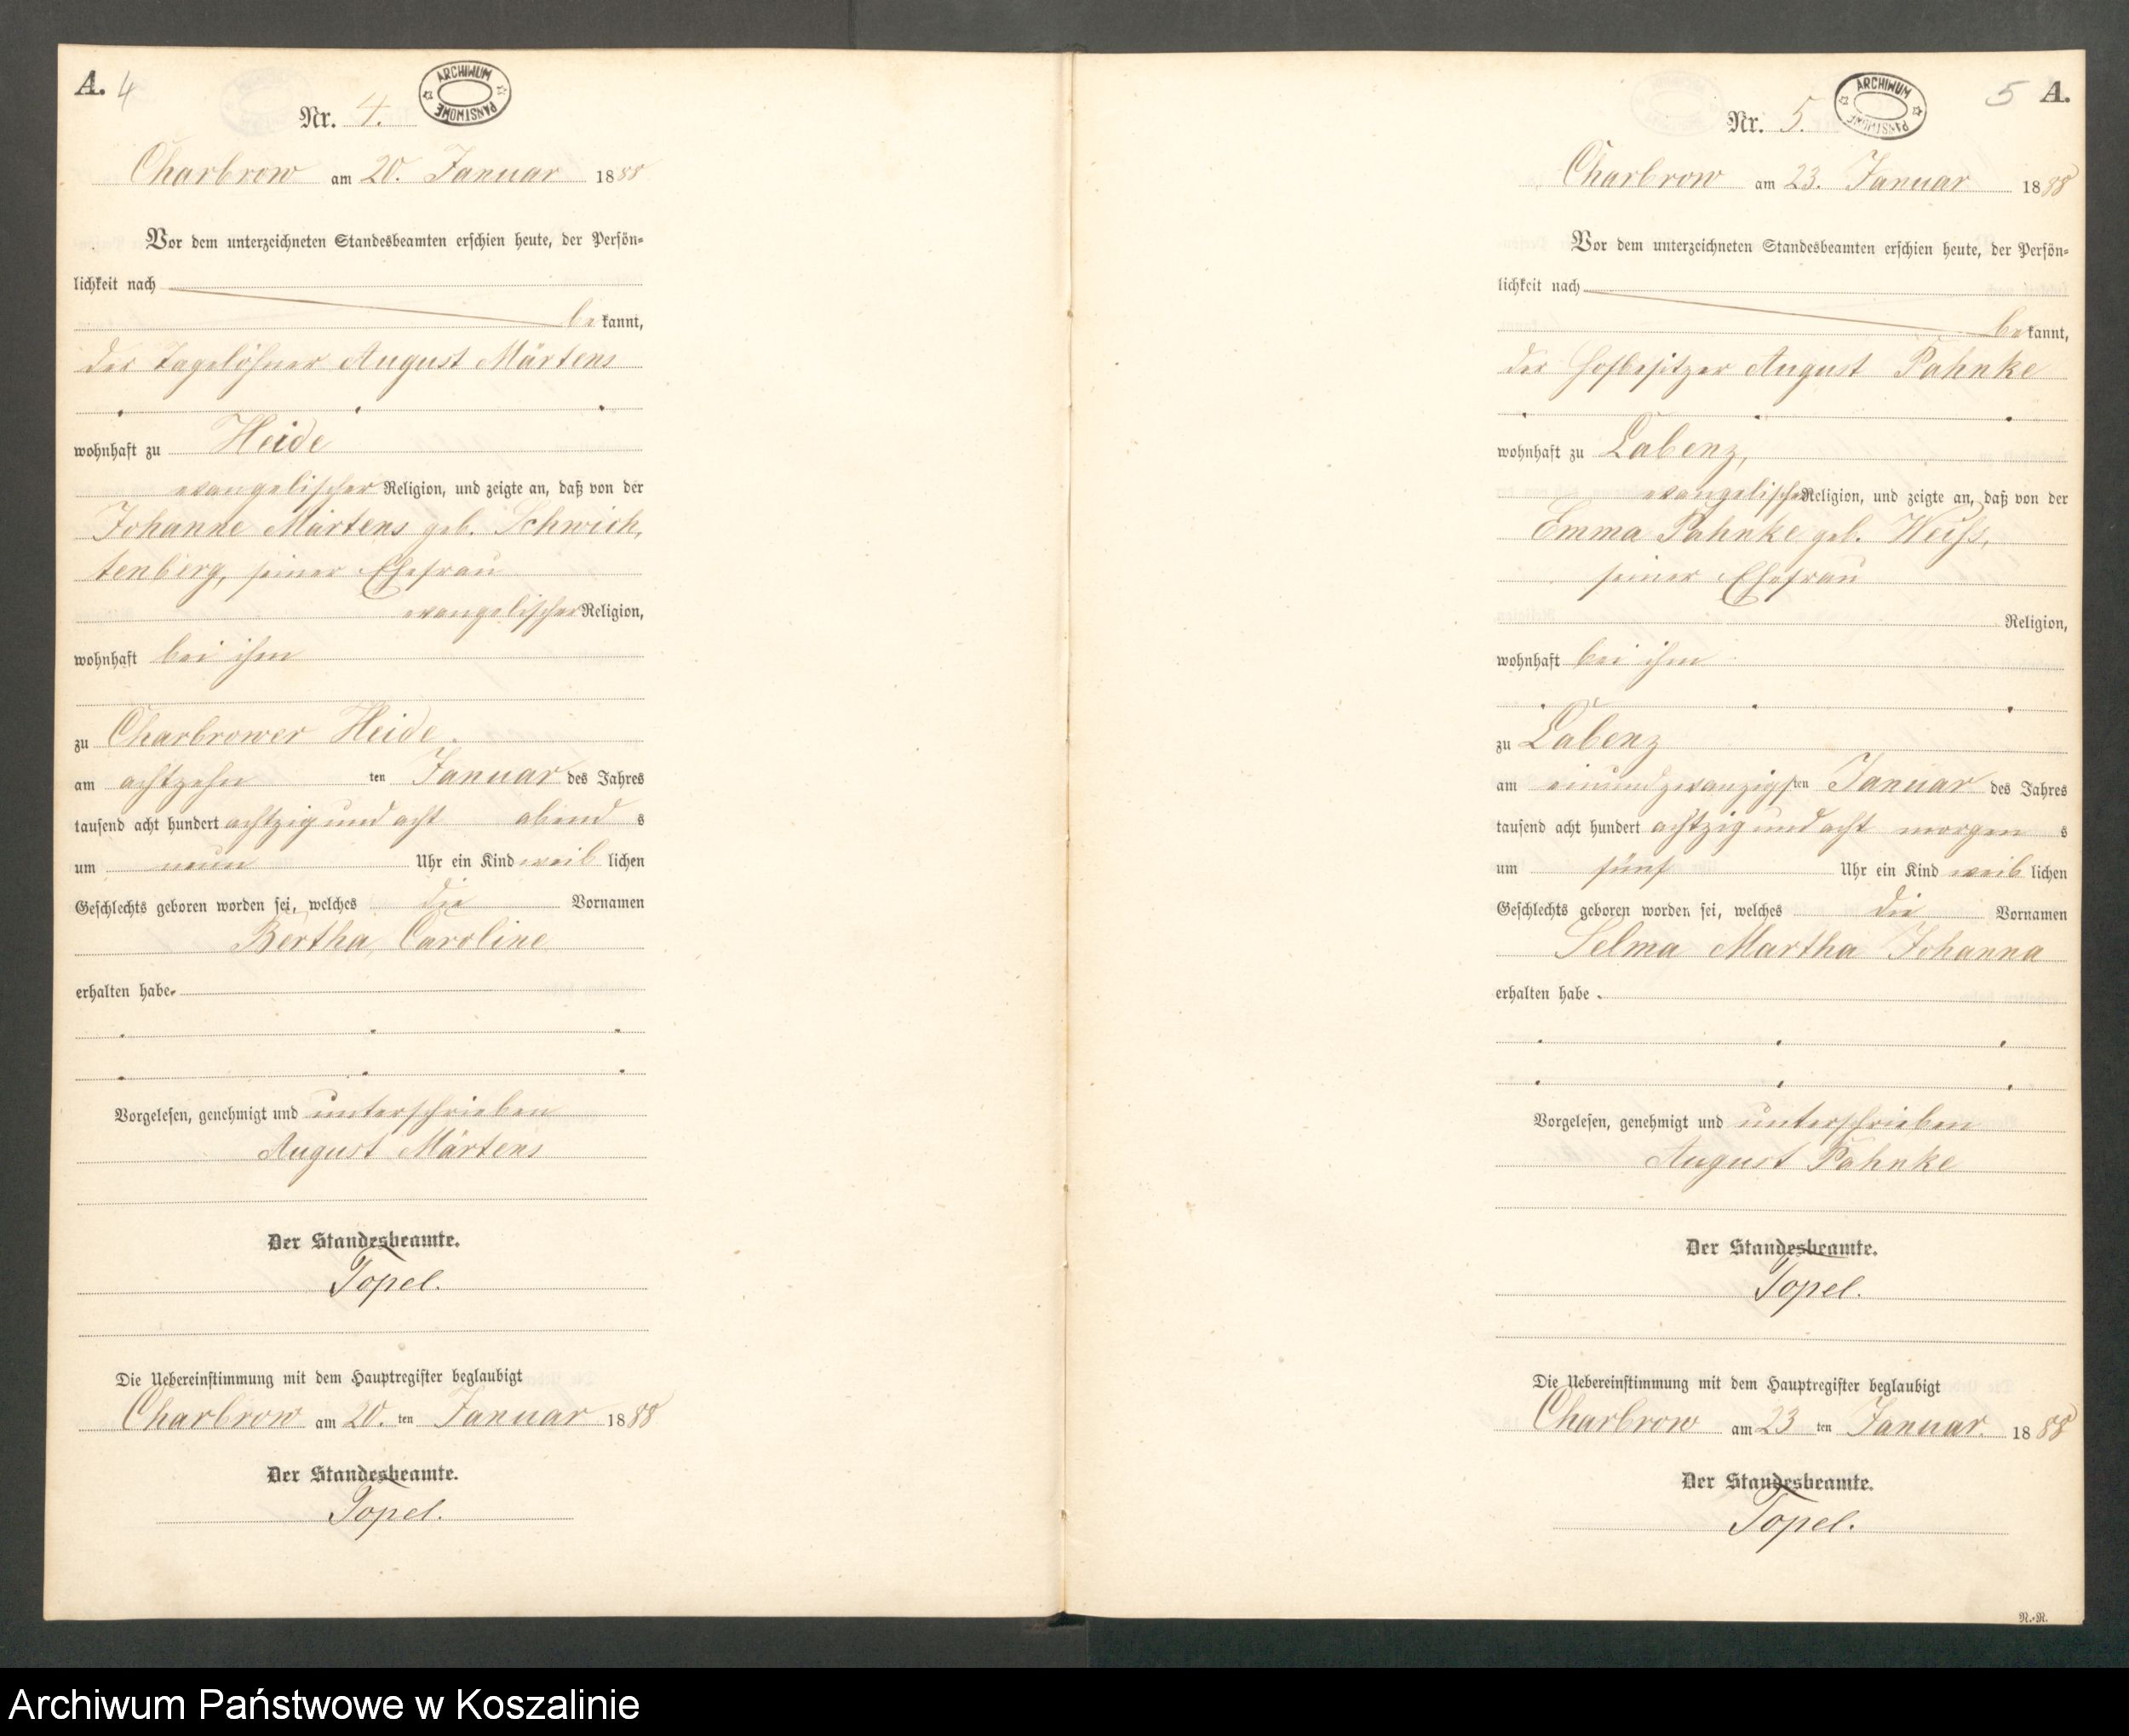 A. 4
ARCHIWUM PAŃSTWOWE
Nr. 4.
Charbrow am 20. Januar 1888
Vor dem unterzeichneten Standesbeamten erschien heute, der Persön-
lichkeit nach
bekannt,
der Tagelöhner August Märtens
wohnhaft zu Heide
evangelischer Religion, und zeigte an, daß von der
Johanne Märtens geb. Schwich,
tenberg, seiner Ehefrau
evangelischer Religion,
wohnhaft bei ihm
zu Charbrower Heide.
am achtzehn ten Januar des Jahres
tausend acht hundert achtzig und acht abend s
um neun Uhr ein Kind weib lichen
Geschlechts geboren worden sei, welches die Vornamen
Bertha, Caroline
erhalten habe.
Vorgelesen, genehmigt und unterschrieben
August Märtens
Der Standesbeamte.
Topel.
Die Uebereinstimmung mit dem Hauptregister beglaubigt
Charbrow am 20. ten Januar 1888
Der Standesbeamte.
Topel.
5 A.
ARCHIWUM PAŃSTWOWE
Nr. 5.
Charbrow am 23. Januar 1888
Vor dem unterzeichneten Standesbeamten erschien heute, der Persön-
lichkeit nach
bekannt,
der Hofbesitzer August Pahnke
wohnhaft zu Labenz,
evangelischer Religion, und zeigte an, daß von der
Emma Pahnke geb. Weiß,
seiner Ehefrau
Religion,
wohnhaft bei ihm
zu Labenz
am einundzwanzigsten Januar des Jahres
tausend acht hundert achtzig und acht morgen s
um fünf Uhr ein Kind weib lichen
Geschlechts geboren worden sei, welches die Vornamen
Selma Martha Johanna
erhalten habe.
Vorgelesen, genehmigt und unterschrieben
August Pahnke
Der Standesbeamte.
Topel.
Die Uebereinstimmung mit dem Hauptregister beglaubigt
Charbrow am 23 ten Januar. 1888
Der Standesbeamte.
Topel.
R.-R.
Archiwum Państwowe w Koszalinie